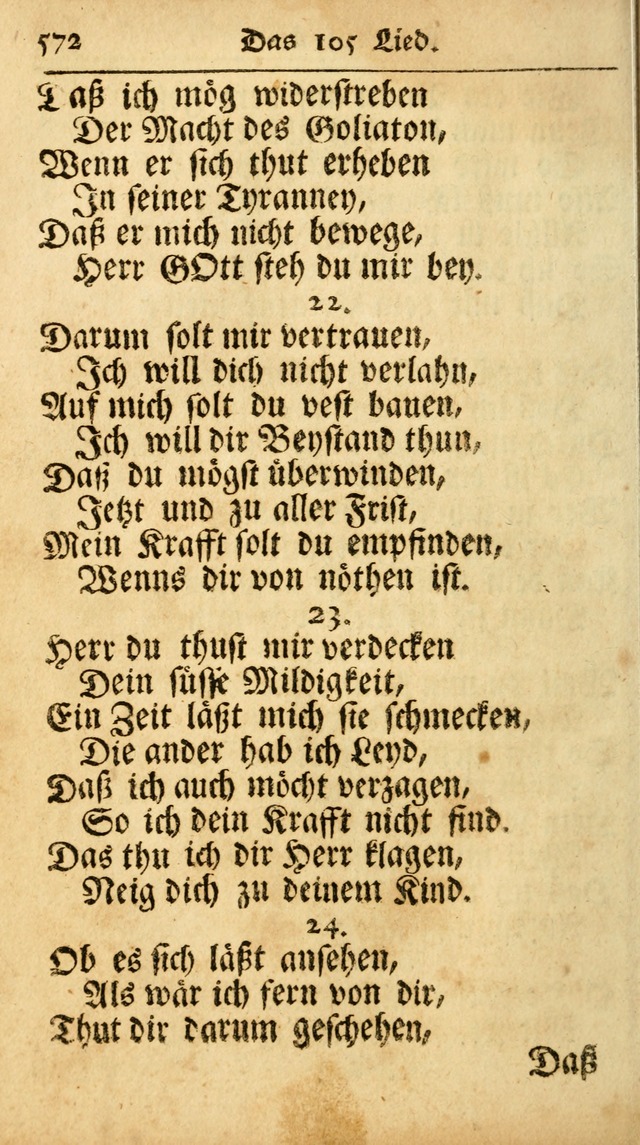 572 Das 105 Lied.
Daß ich mög widerstreben
Der Macht des Goliaton,
Wenn er sich thut erheben
In seiner Tyranney,
Daß er mich nicht bewege,
Herr GOtt steh du mir bey.
22.
Darum solt mir vertrauen,
Ich will dich nicht verlahn,
Auf mich solt du vest bauen,
Ich will dir Beystand thun,
Daß du mögst überwinden,
Jetzt und zu aller Frist,
Mein Krafft solt du empfinden,
Wenns dir von nöthen ist.
23.
Herr du thust mir verdecken
Dein süsse Mildigkeit,
Ein Zeit läßt mich sie schmecken,
Die ander hab ich Leyd,
Daß ich auch möcht verzagen,
So ich dein Krafft nicht find.
Das thu ich dir Herr klagen,
Neig dich zu deinem Kind.
24.
Ob es sich läßt ansehen,
Als wär ich fern von dir,
Thut dir darum geschehen,
Daß